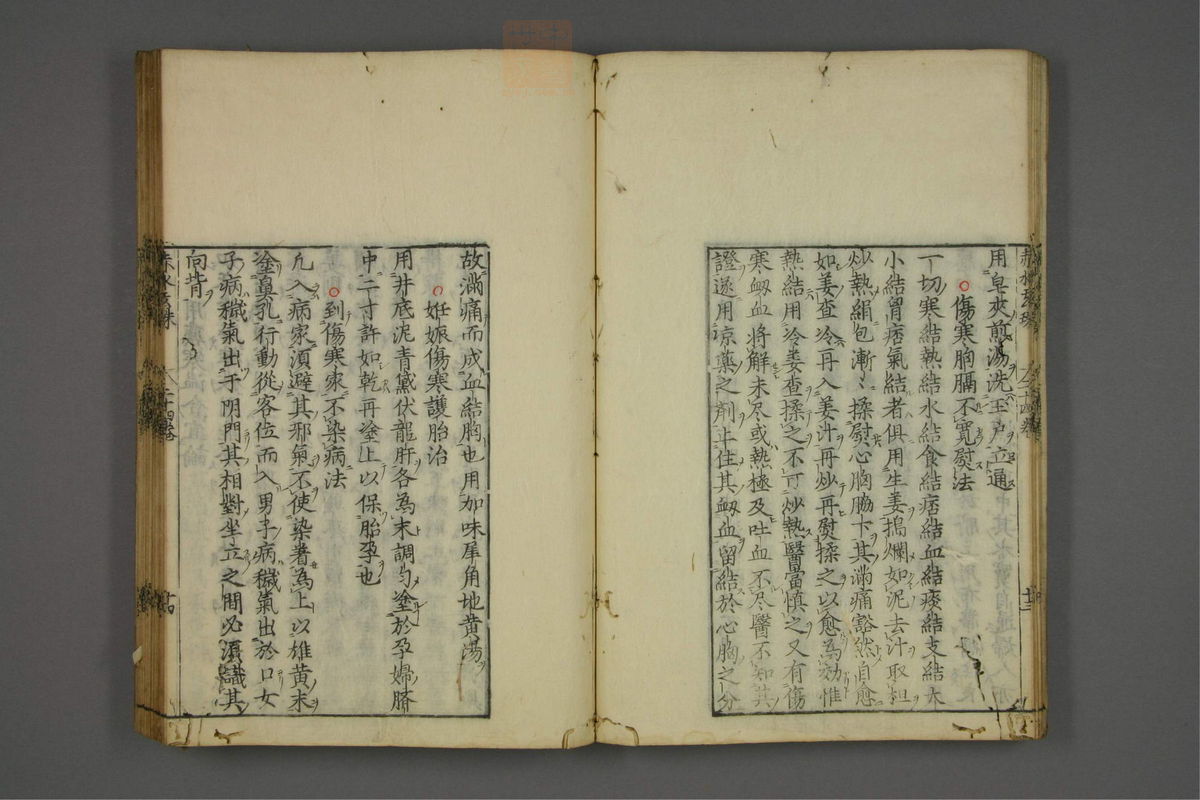 用皂夾煎湯洗玉戶立通
傷寒胸膈不寬熨法
一切寒結熱結水結食結痞結血結痰結支結大
小結胃痞氣結者俱用生姜搗爛如泥去汁取柤
炒熱絹包漸〻揉熨心胸脇下其滿痛豁然自愈
如姜查冷再入姜汁再炒再熨揉之以愈為効惟
熱結用冷姜查揉之不可炒熱醫當慎之又有傷
寒衂血將解未尽或熱極及吐血不尽醫不知其
證遂用凉藥之劑止住其衂血留結於心胸之分
故滿痛而成血結胸也用加味犀角地黄湯
妊娠傷寒護胎治
用井底泥青黛伏龍肝各為末調勻塗於孕婦臍
中二寸許如乾再塗上以保胎孕也
到傷寒家不染病法
凢入病家須避其邪氣不使染着為上以雄黄末
塗鼻孔行動從容位而入男子病穢氣出於口女
子病穢氣出于阴門其相對坐立之間必須識其
向背